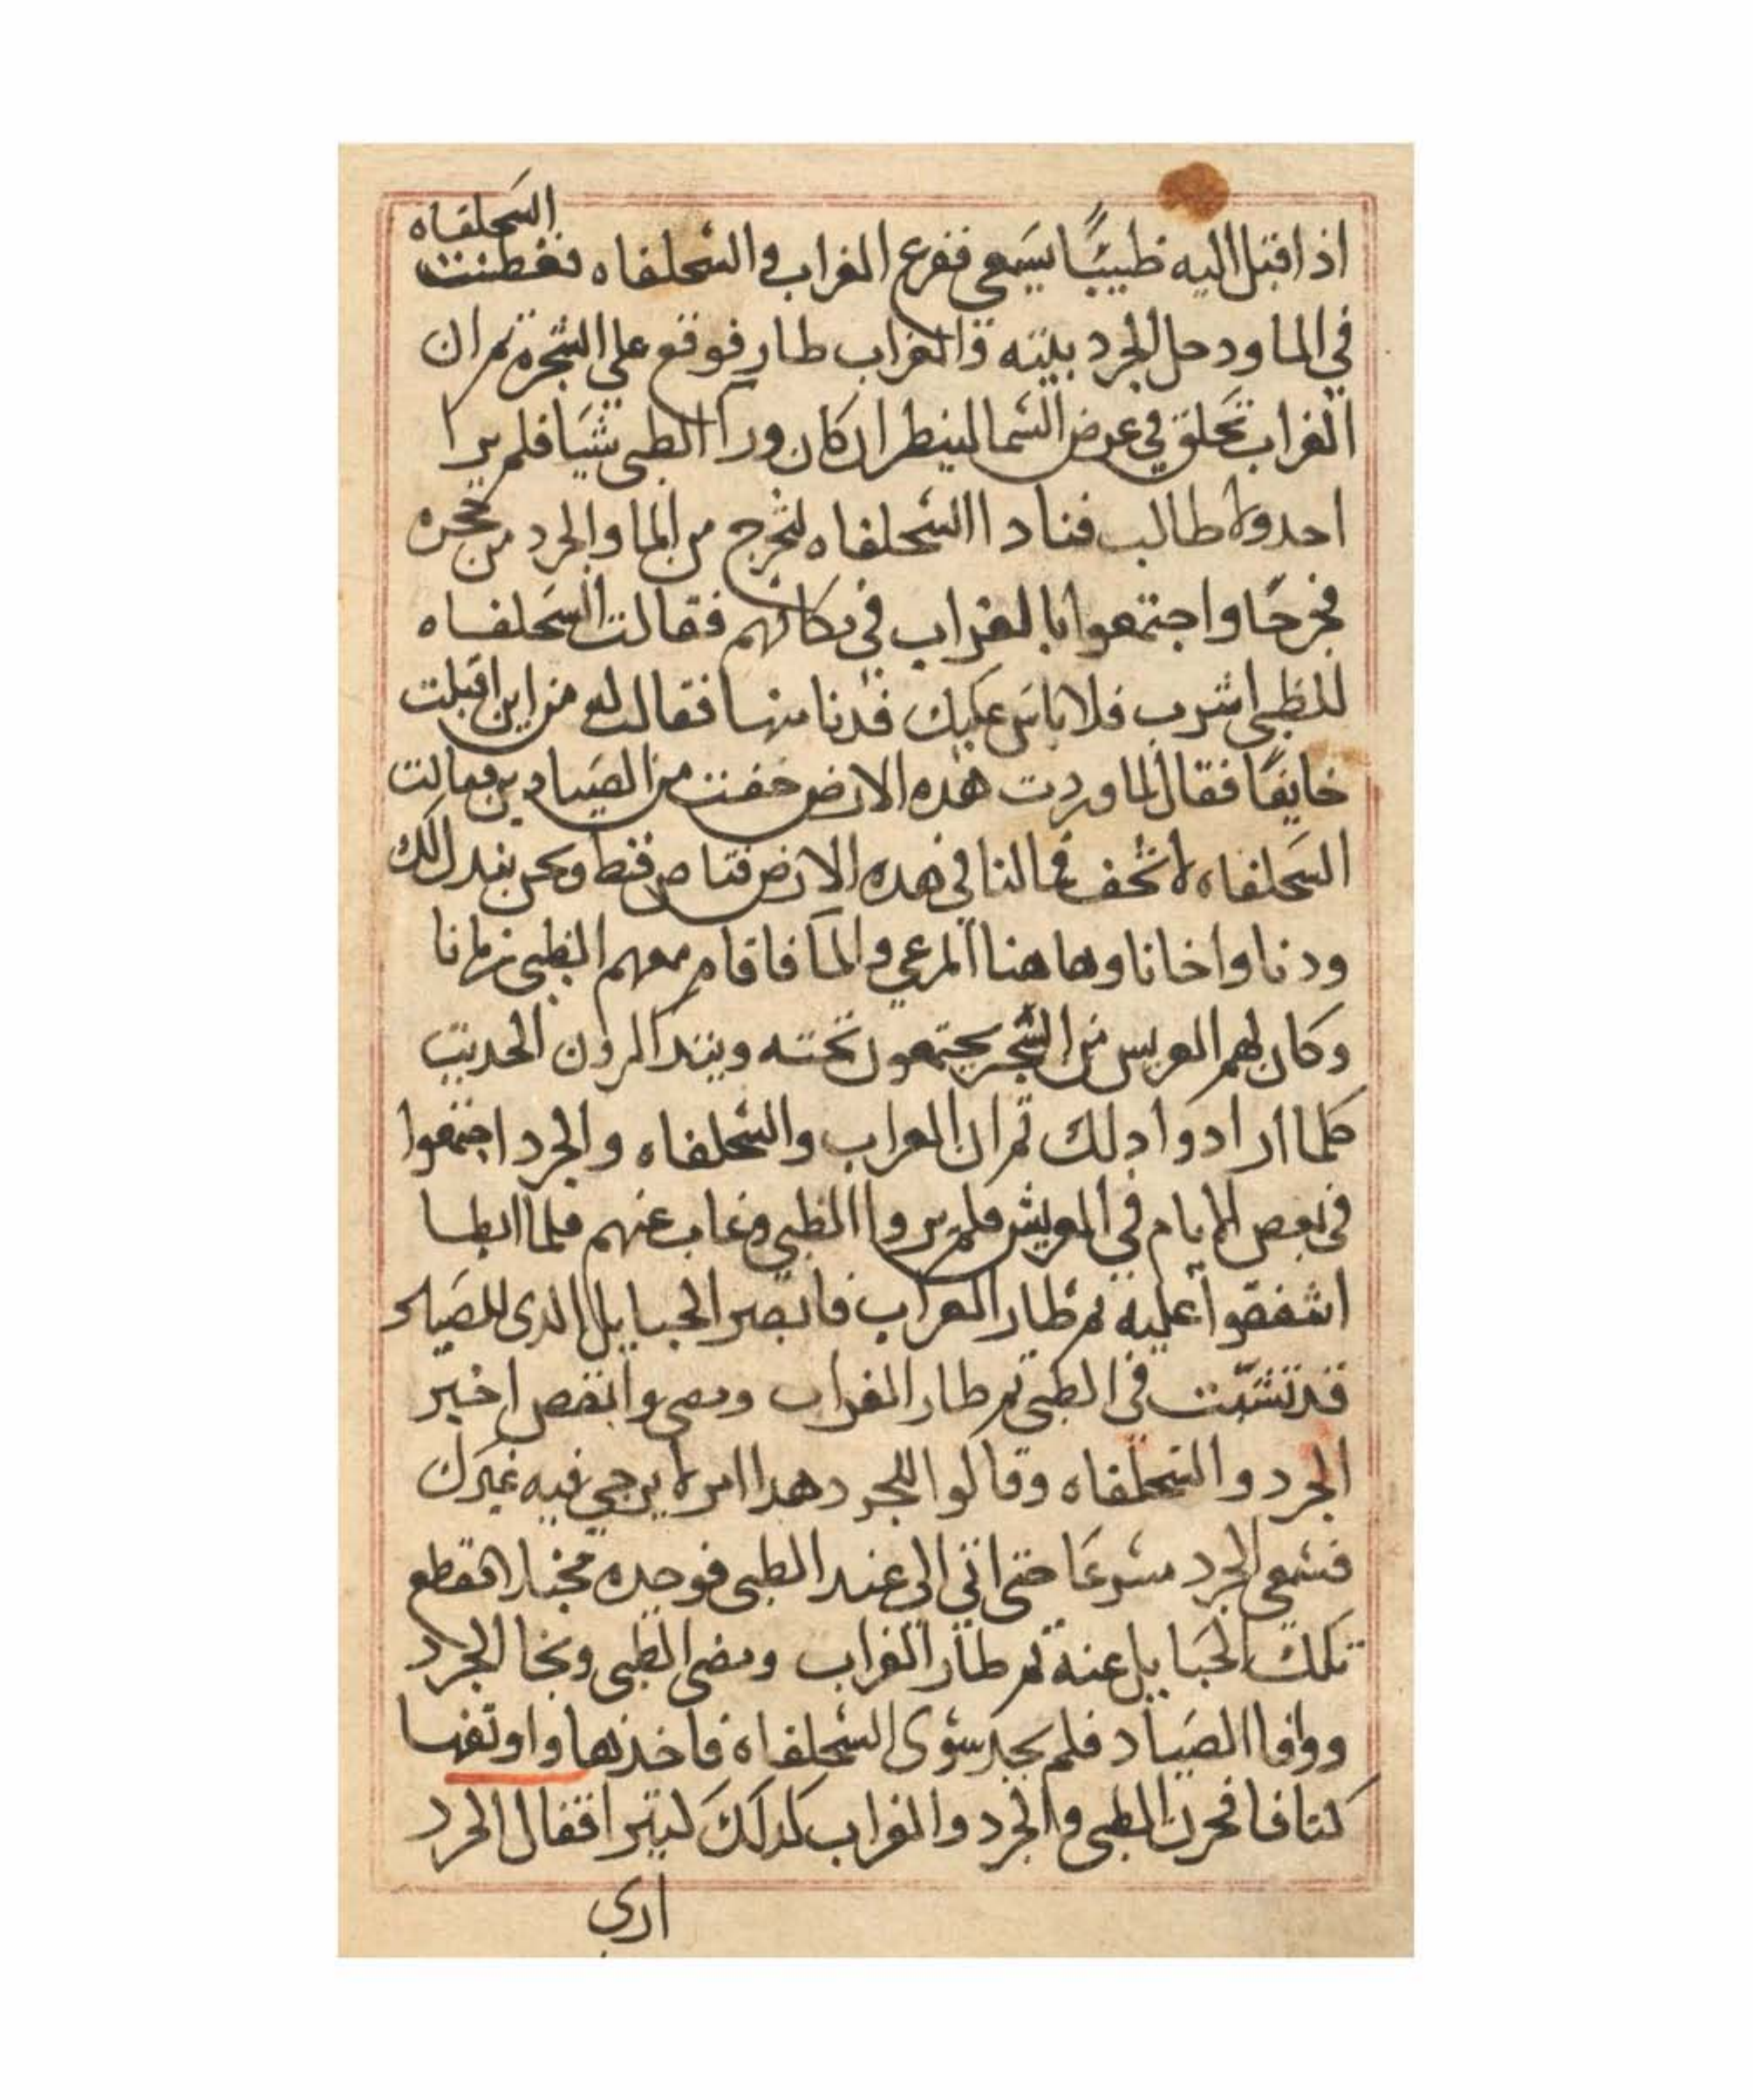 السحلفاه
اذ اقبل اليه ظبيًا يسعى ففزع الغراب والسحلفاه فغطست
في الما ودخل الجرد بيته والغراب طار فوقع علي الشجرة ثم ان
الغراب تحلق في عرض السما لينظر ان كان ورا الظبي شيا فلم يرا
احد ولا طالب فنادا السحلفاه لتخرج من الما والجرد من جحره
فخرجا واجتمعوا بالغراب في مكانهم فقالت السحلفاه
للظبي اشرب فلا باس عليك فدنا منها فقالت له من اين اقبلت
خايفا فقال لما وردت هذه الارض خفت من الصيادين فقالت
السحلفاه لا تخف فما لنا في هذه الارض قناص قط ونحن نبدل لك
ودنا واخانا وهاهنا المرعي والما فاقام معهم الظبي زمانا
وكان لهم العريس من الشجر يجتمعون تحته ويتذاكرون الحديت
كلما ارادوا دلك ثم ان الغراب والسحلفاه والجرد اجتمعوا
في بعض الايام في العريش فلم يروا الظبي وغاب عنهم فلما ابطا
اشفقوا عليه ثم طار الغراب فابصر الحبايل الذي للصياد
قد تشبتت في الظبي ثم طار الغراب ومضي وانقض اخبر
الجرد والسحلفاه وقالوا للجرد هدا امر لا يرجي فيه غيرك
فسعى الجرد مسرعًا حتى اتي الى عند الظبي فوجده مخبلا فقطع
تلك الحبايل عنه ثم طار الغراب ومضى الظبي ونجا الجرد
ووافا الصياد فلم يجد سوى السحلفاة فاخذها واوثقها
كتافا فحزن الظبي والجرد والغراب لدلك كتيرا فقال الجرد
اري